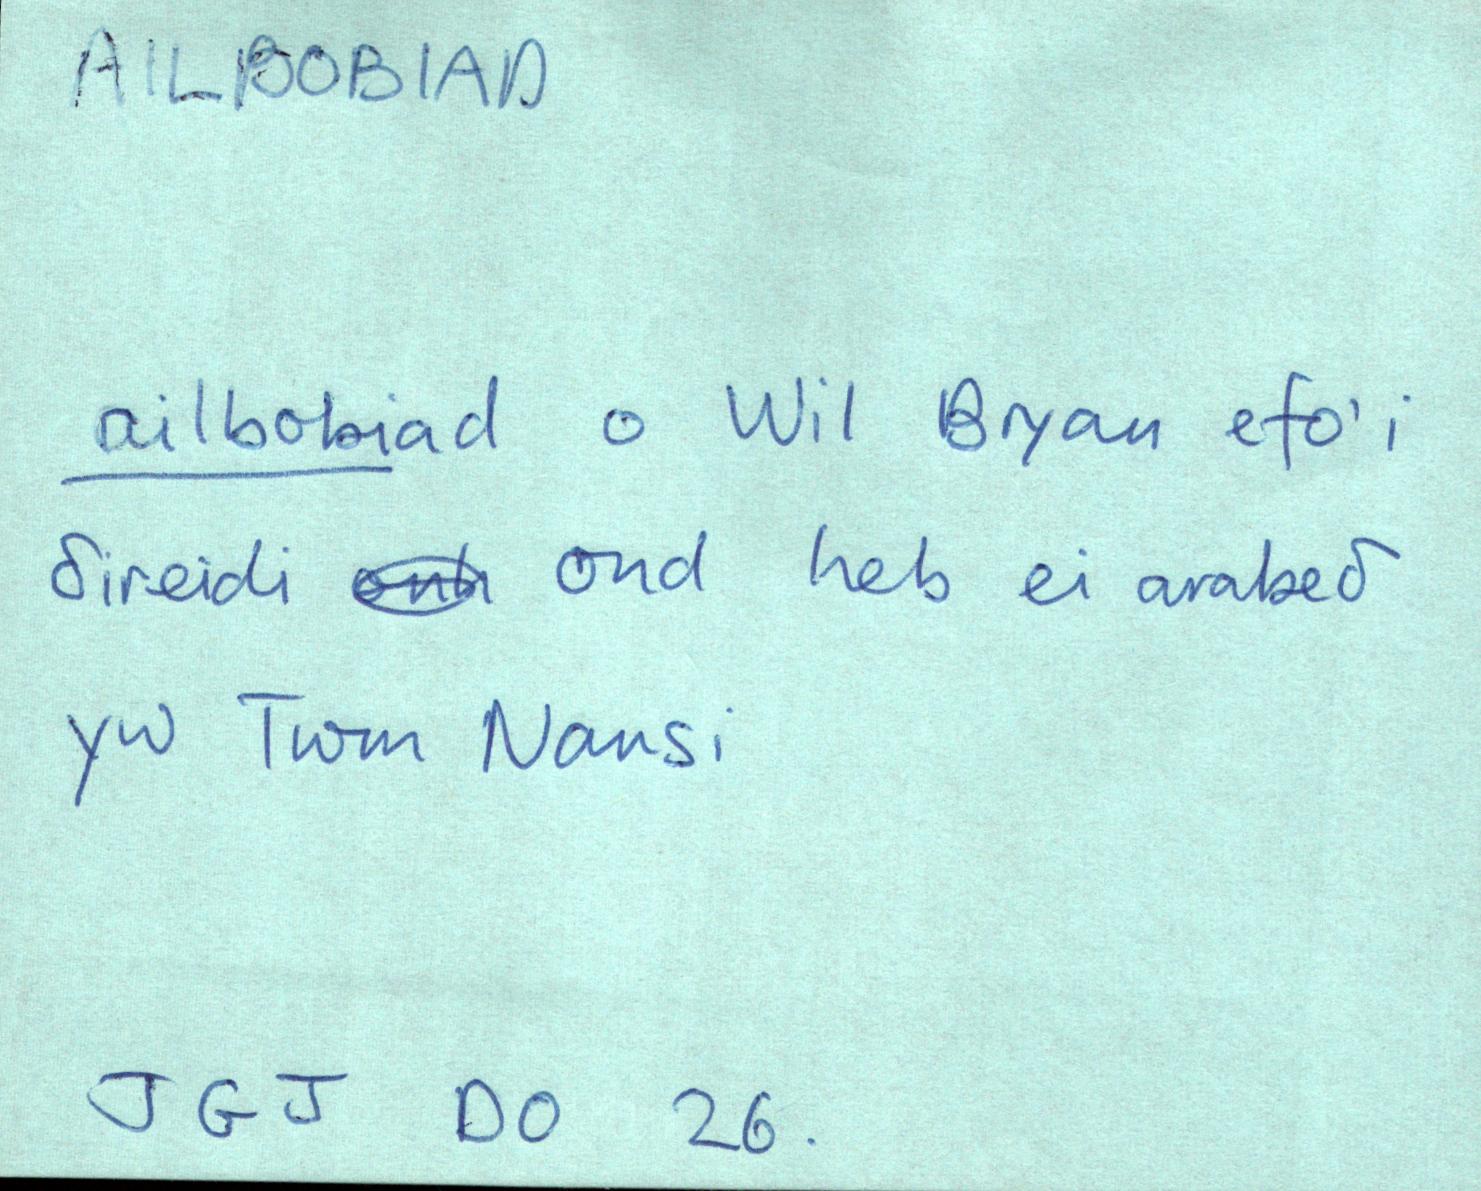 AILBOBIAD
ailbobiad o Wil Bryan efo'i
δireidi ond heb ei arabeδ
yw Twm Nansi
JGJ DO 26.